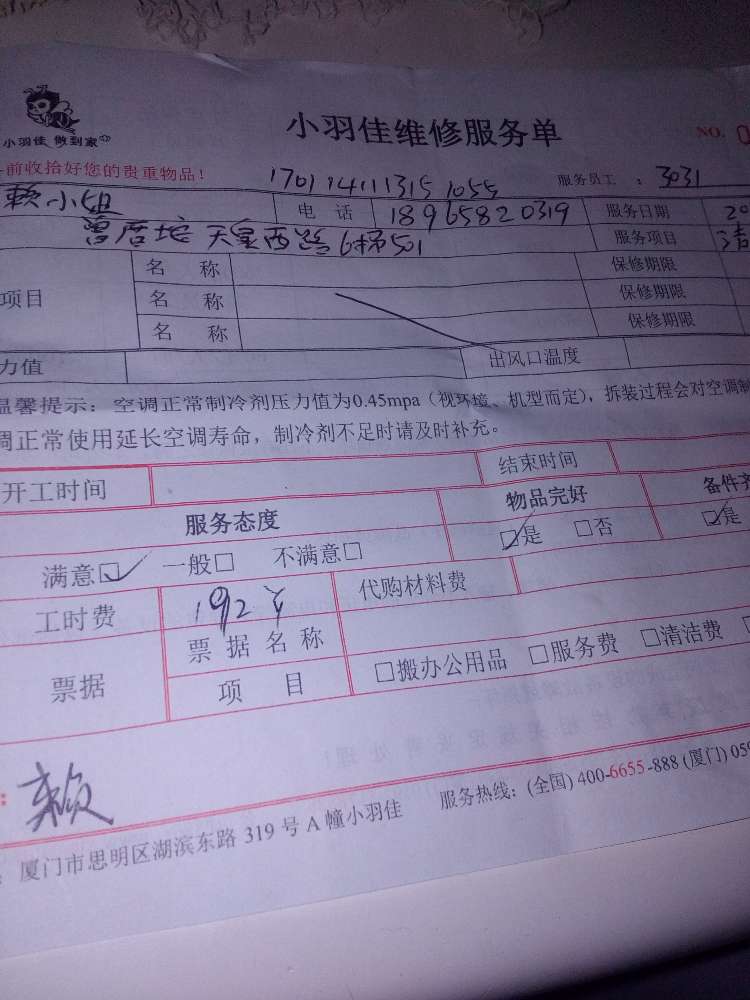 小羽佳 做到家
小羽佳维修服务单
NO. 0
前收拾好您的贵重物品!
1701141113151055 服务员工 : 3031
赖小姐 电 话 18965820319 服务日期 20
曾厝垵 天皇西路 6梯501 服务项目 清
项目 名 称 保修期限
名 称 保修期限
名 称 保修期限
力值 出风口温度
温馨提示:空调正常制冷剂压力值为0.45mpa(视环境、机型而定),拆装过程会对空调制
调正常使用延长空调寿命,制冷剂不足时请及时补充。
开工时间 结束时间
服务态度 物品完好 备件齐
满意☑ 一般□ 不满意□ ☑是 □否 ☑是
工时费 192¥ 代购材料费
票据 票 据 名 称
项 目 □搬办公用品 □服务费 □清洁费
: 赖
: 厦门市思明区湖滨东路 319 号 A 幢小羽佳 服务热线:(全国) 400-6655-888 (厦门) 059